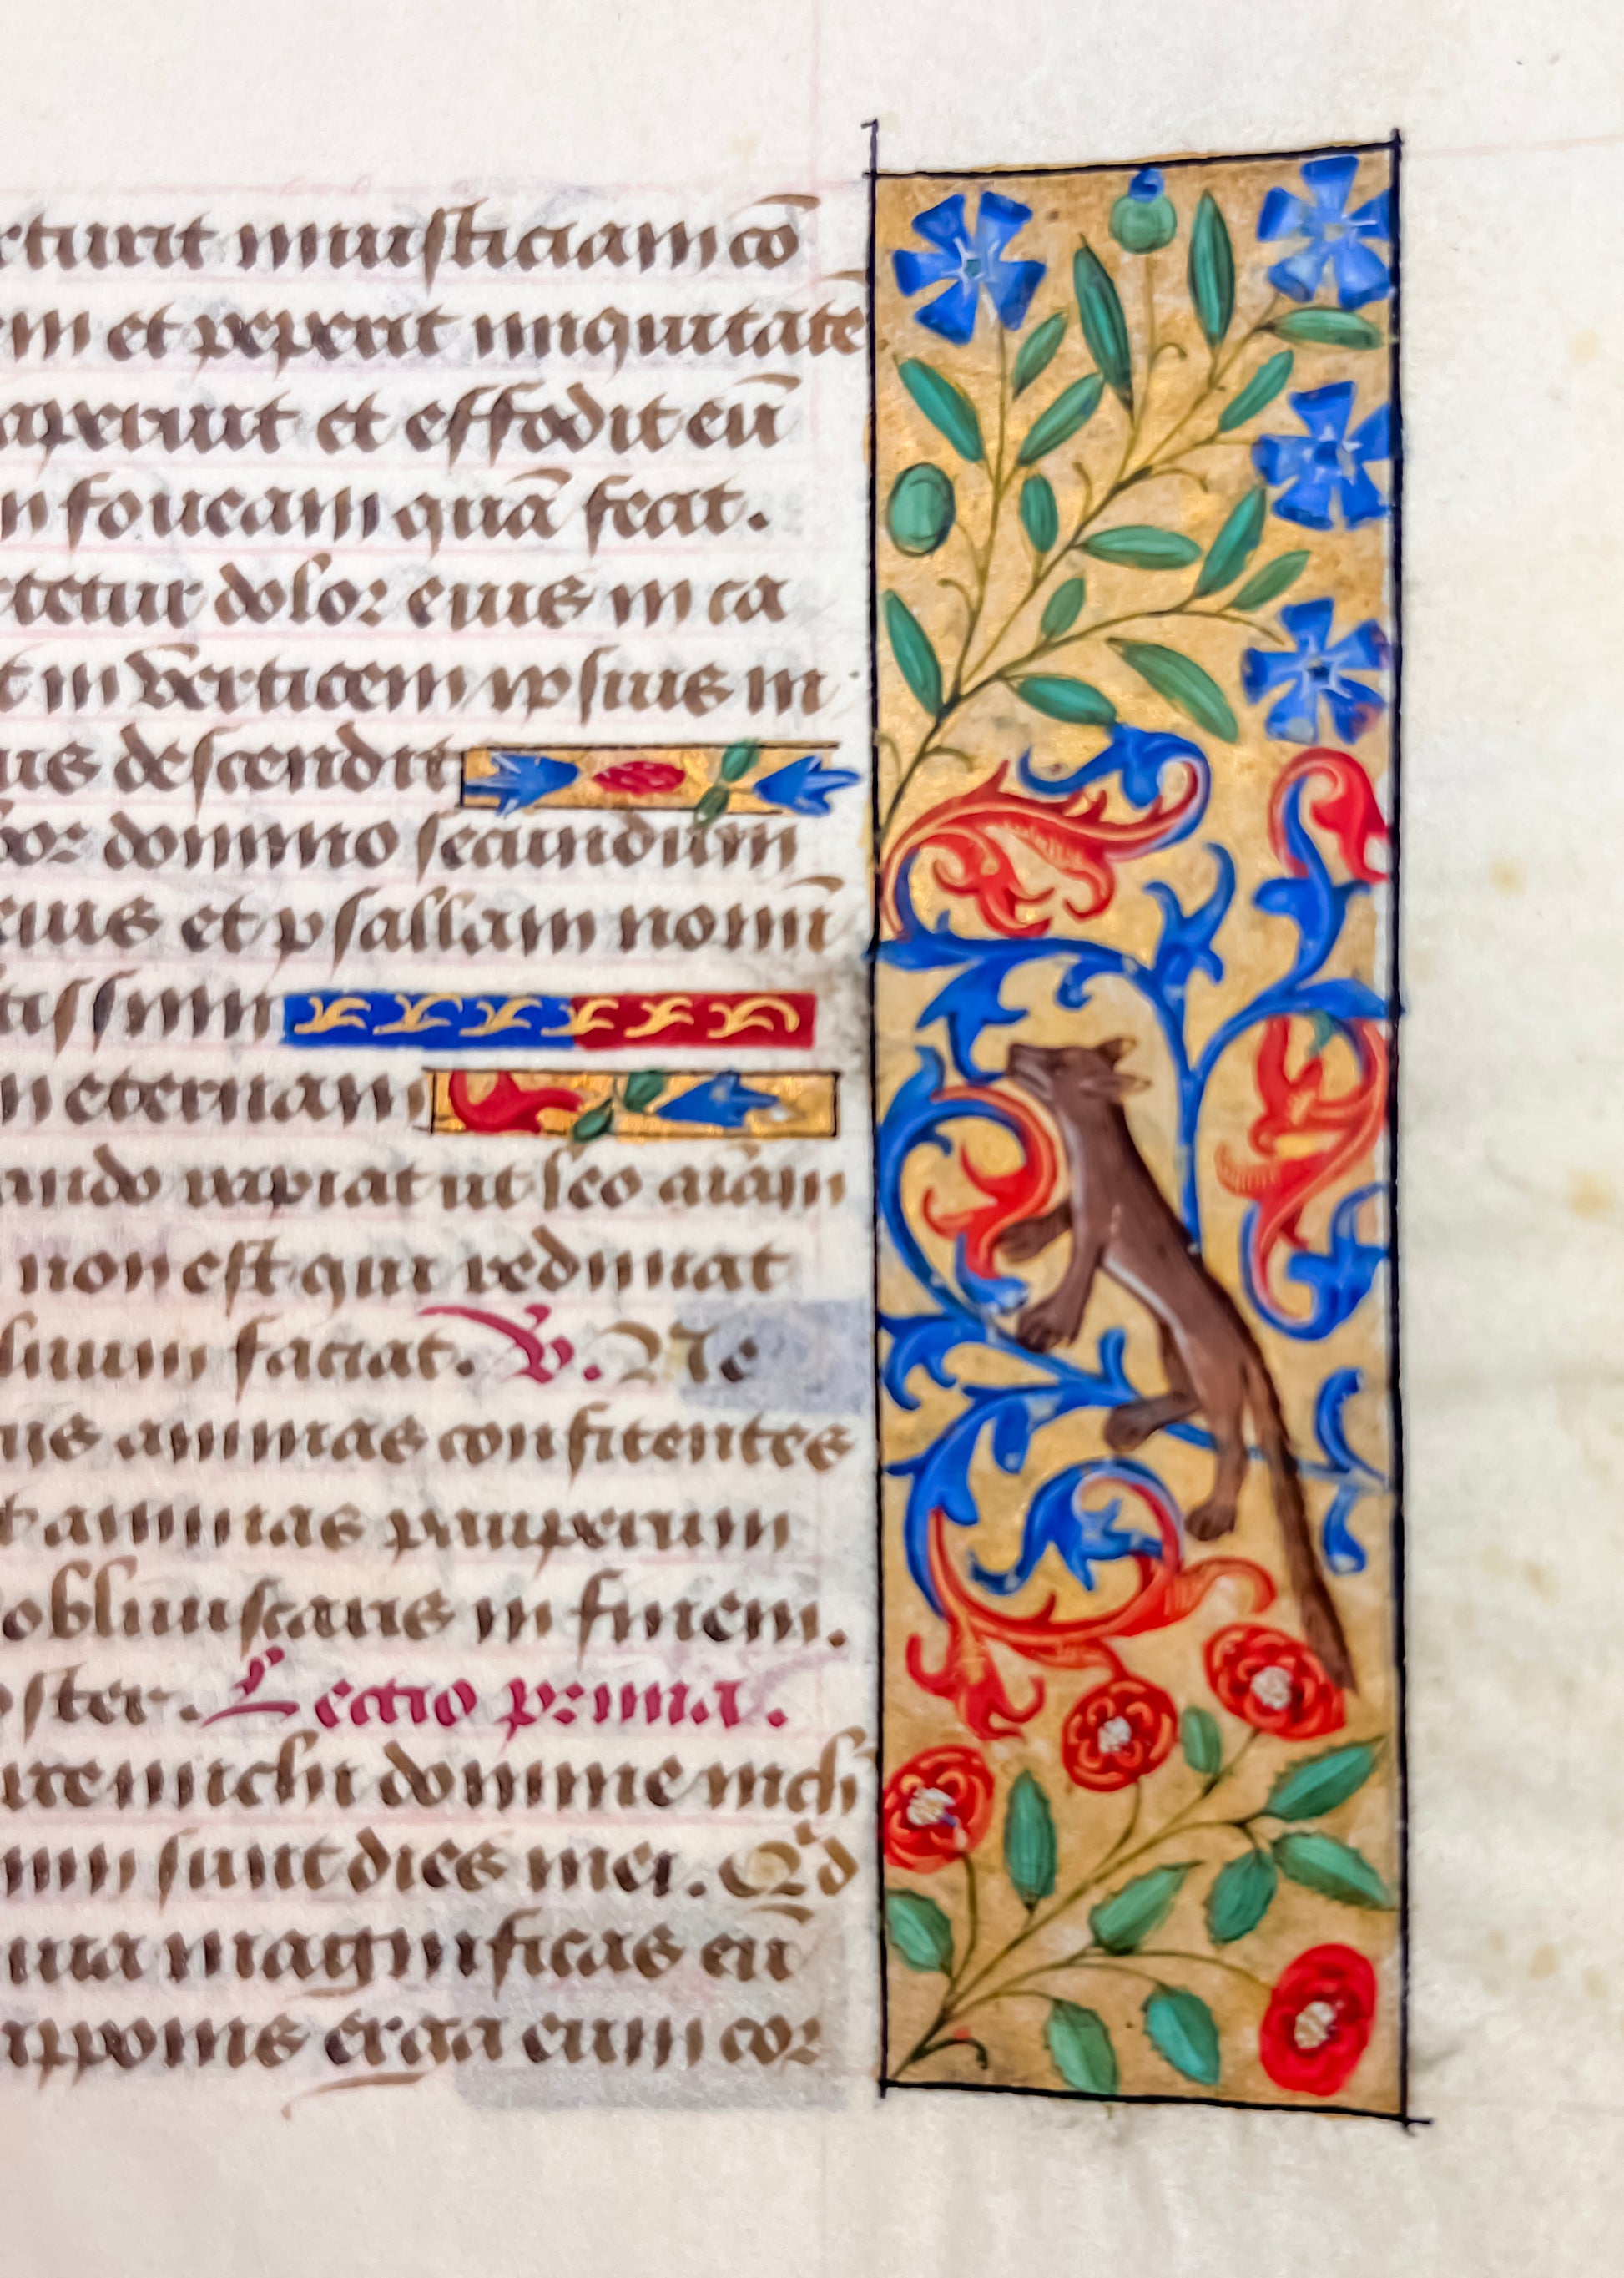 rturit iniusticiam cō
em et peperit iniquitatē
aperuit et effodit eū
n foueam quā fecit.
rtetur dolor eius in ca
t in verticem ipsius in
us descendit
bor domino secundum
eius et psallam nomī
tissimi
n eternam
ando rapiat ut leo aīam
non est qui redimat
luum faciat. V. Ne
us animas confitentes
t animas pauperum
obliuiscaris in finem.
oster. Lectio prima.
arce michi domine nich
im sunt dies mei. Qd
uia magnificas eū
apponis erga eum cor